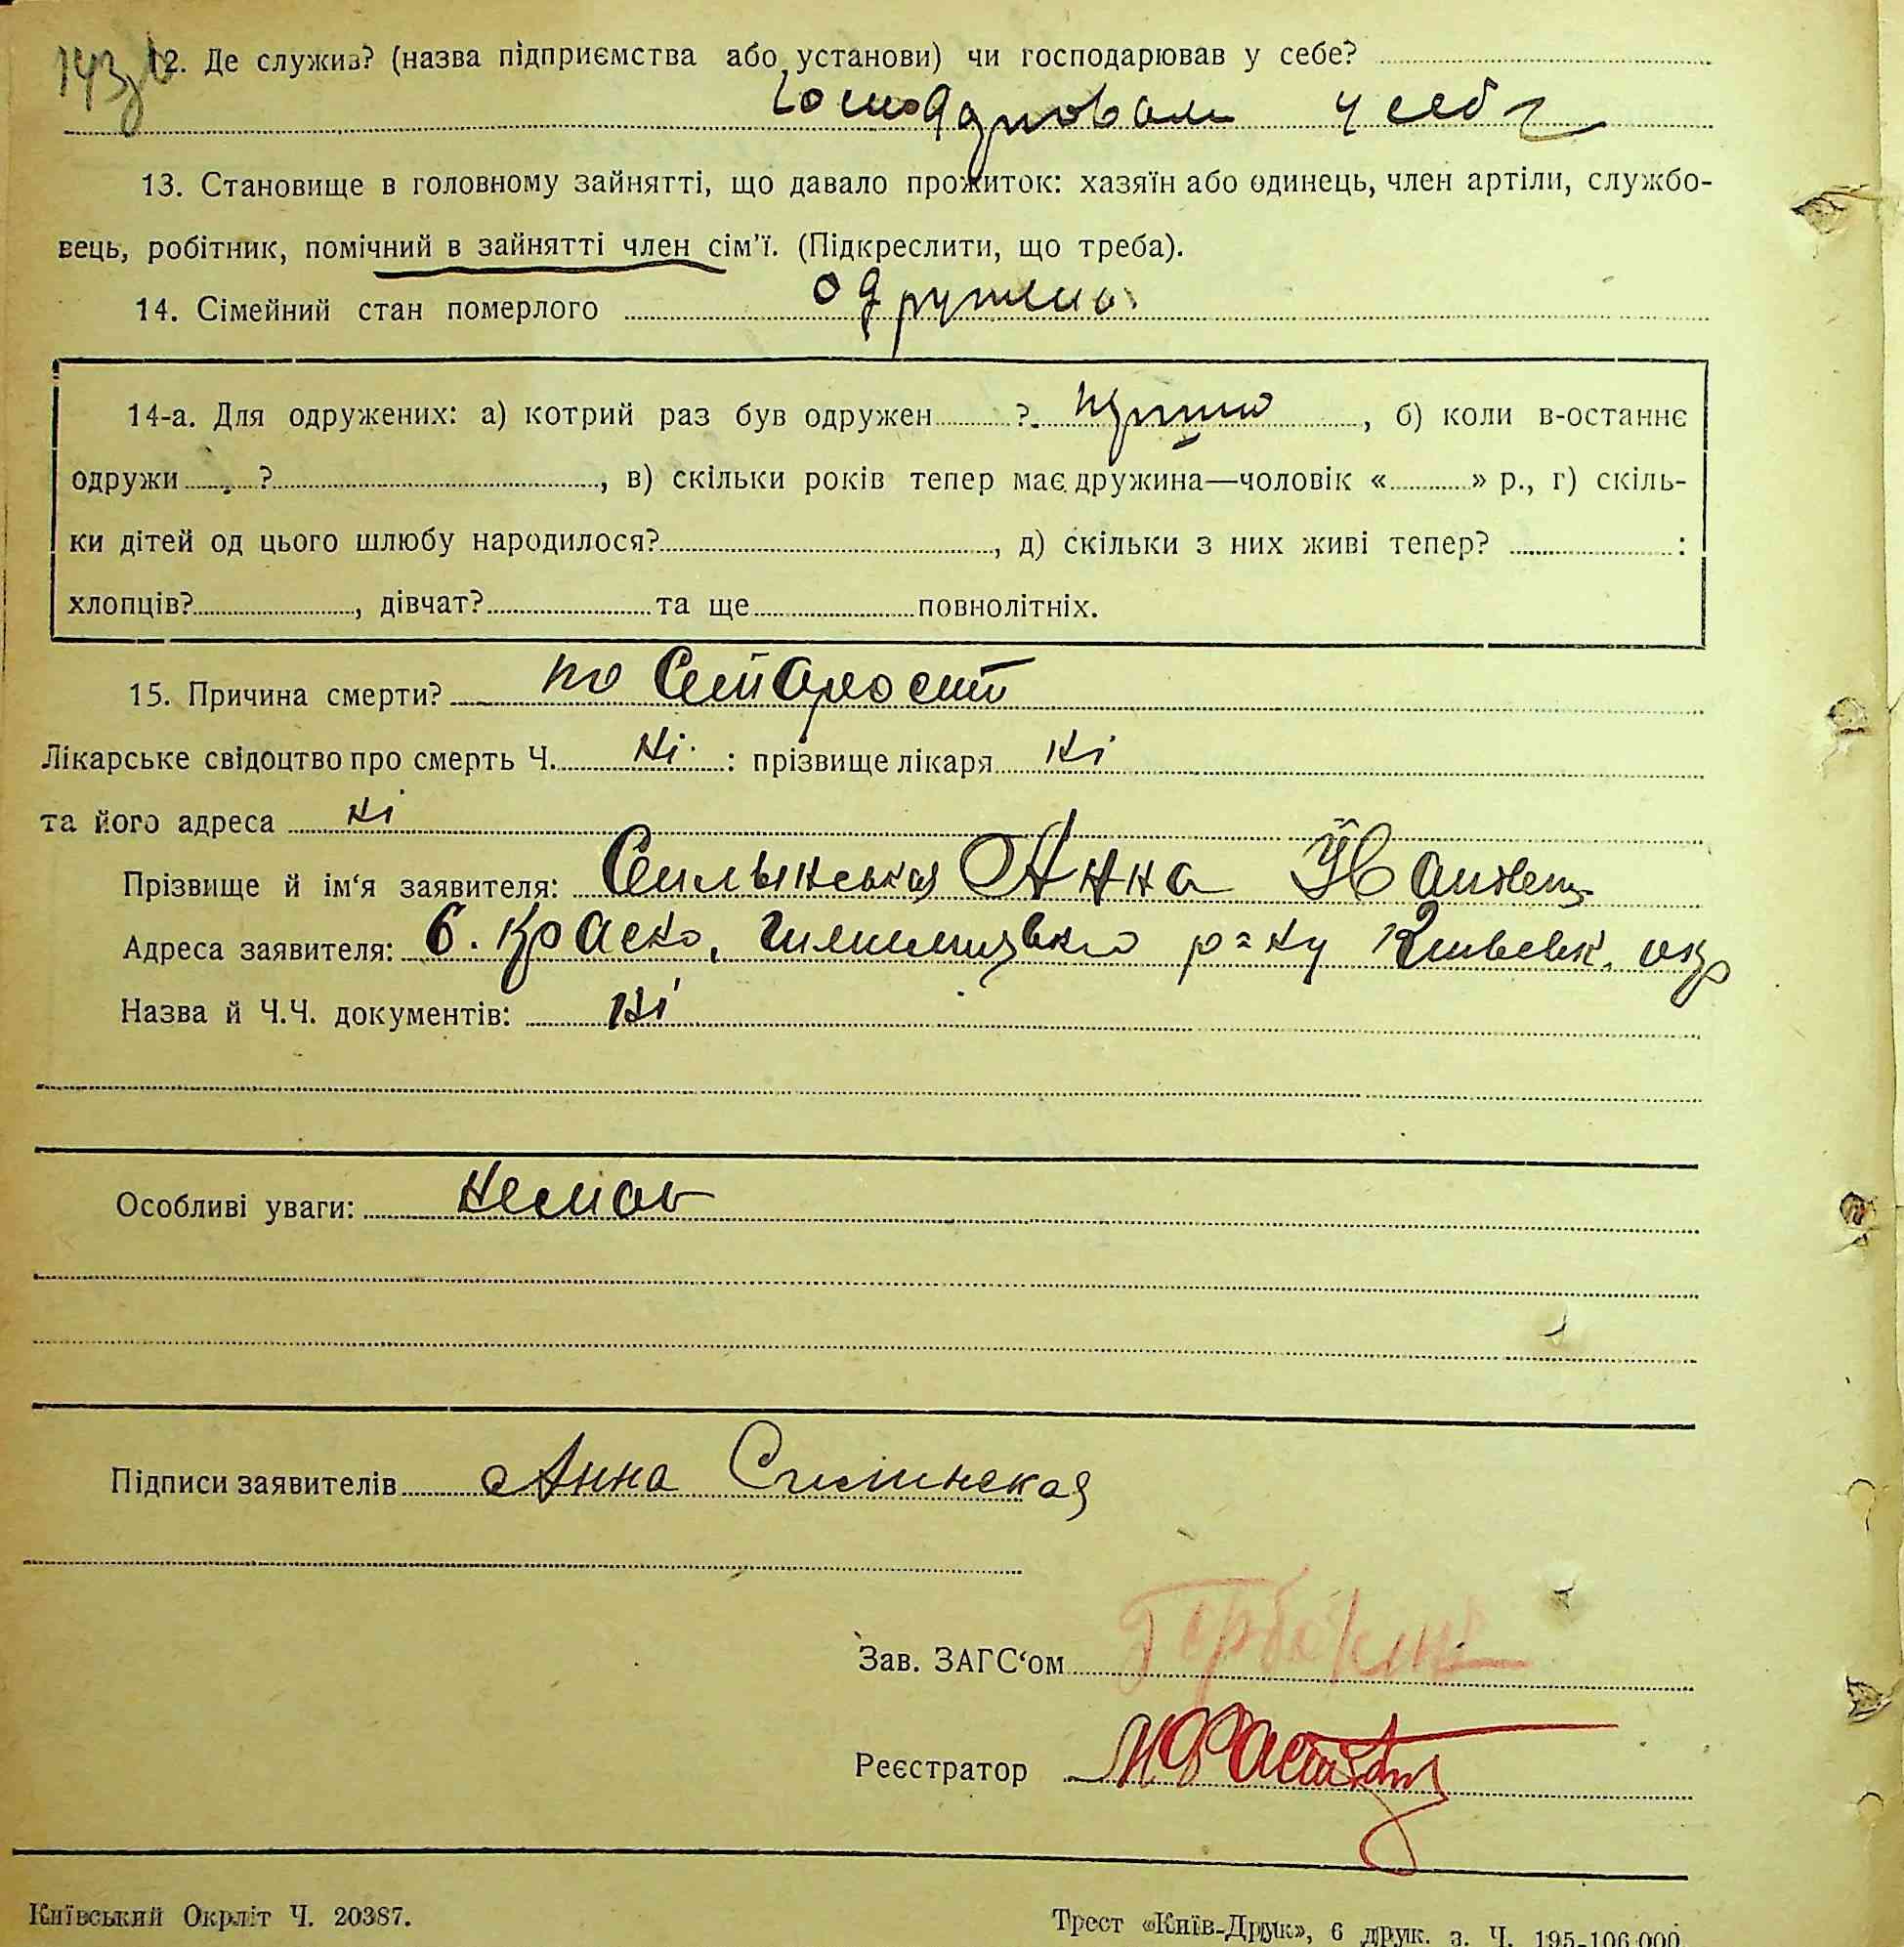 143
12. Де служив? (назва підприємства або установи) чи господарював у себе?
у себе
13. Становище в головному зайнятті, що давало прожиток: хазяїн або одинець, член артіли, службо-
вець, робітник, помічний в зайнятті член сім'ї. (Підкреслити, що треба).
14. Сімейний стан померлого одружена
14-а. Для одружених: а) котрий раз був одружен ? , б) коли в-останнє
одружи ? , в) скільки років тепер має дружина—чоловік « » р., г) скіль-
ки дітей од цього шлюбу народилося? , д) скільки з них живі тепер? :
хлопців? , дівчат? та ще повнолітніх.
15. Причина смерти? по старості
Лікарське свідоцтво про смерть Ч. Ні : прізвище лікаря Ні
та його адреса Ні
Прізвище й ім'я заявителя: Анна
Адреса заявителя: с. р-ну Київськ. окр
Назва й Ч.Ч. документів: Ні
Особливі уваги: Немає
Підписи заявителів Анна
Зав. ЗАГС'ом
Реєстратор
Київський Окрліт Ч. 20387.
Трест «Київ-Друк», 6 друк. з. Ч. 195-106.000.